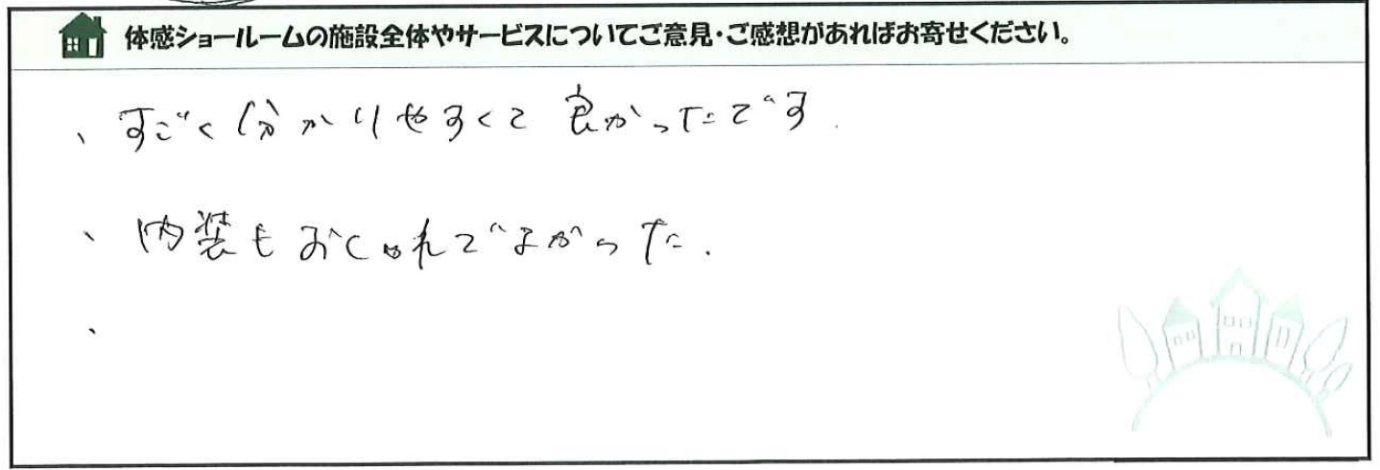 体感ショールームの施設全体やサービスについてご意見・ご感想があればお寄せください。
、すごく分かりやすくて良かったです.
、内装もおしゃれでよかった.
、